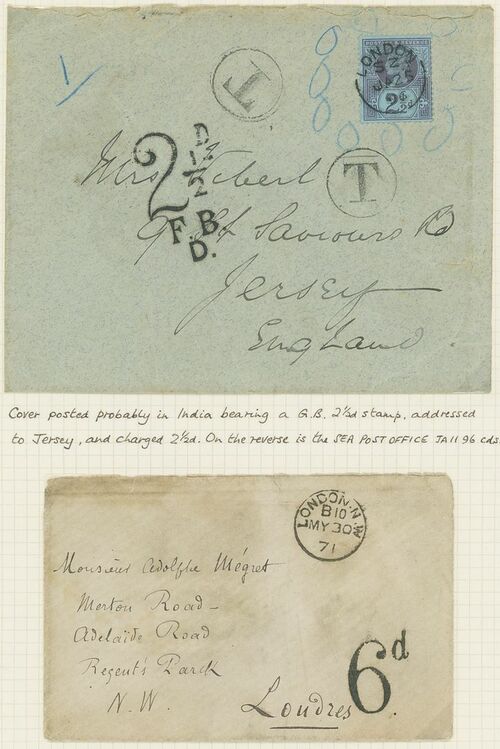 1
T
POSTAGE & REVENUE
LONDON
S.Z
JA 25
2½d
2 D ½
F.B.
D.
T
Mrs
9 St Saviours Rd
Jersey
England
Cover posted probably in India bearing a G.B. 2½d stamp, addressed
to Jersey, and charged 2½d. On the reverse is the SEA POST OFFICE JA 11 96 cds.
LONDON. N.W
B10
MY 30
71
Monsieur Adolphe Mégret
Merton Road
Adelaïde Road
Regent's Parck
N. W.
Londres
6d.